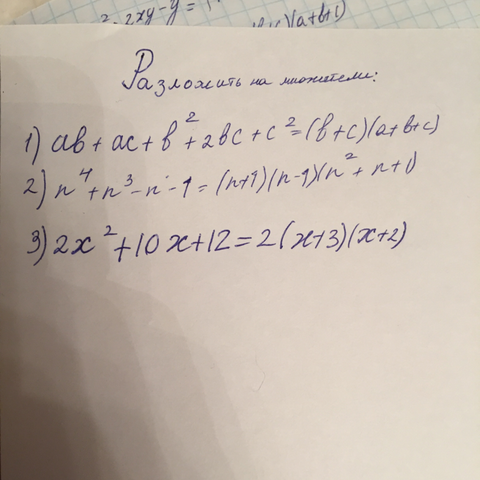 2xy-y=
(a+b+1)
Разложить на множители:
1) ab+ac+b²+2bc+c²=(b+c)(a+b+c)
2) n⁴+n³-n-1=(n+1)(n-1)(n²+n+1)
3) 2x²+10x+12=2(x+3)(x+2)